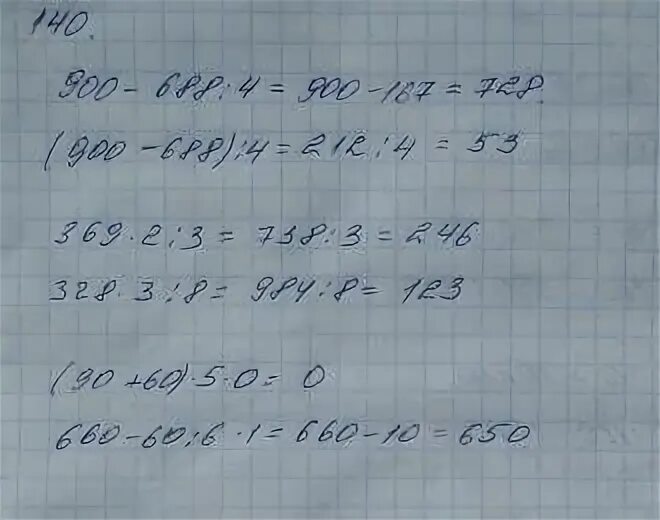 140.
900 - 688 : 4 = 900 - 187 = 728.
(900 - 688) : 4 = 212 : 4 = 53
369 · 2 : 3 = 738 : 3 = 246
328 · 3 : 8 = 984 : 8 = 123
(90 + 60) · 5 · 0 = 0
660 - 60 : 6 · 1 = 660 - 10 = 650